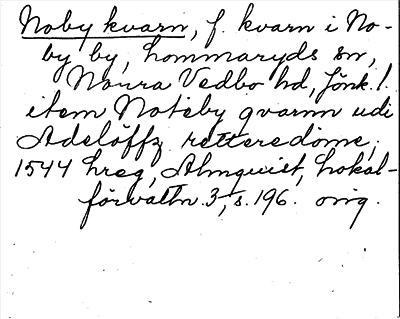 Noby kvarn, f. kvarn i No-
by by, Lommaryds sn,
Norra Vedbo hd, Jönk. l.
item Noteby qvarnn udi
Adelöffz retteredöme,
1544 hreg, Almquist, Lokal-
förvaltn. 3, s. 196. orig.